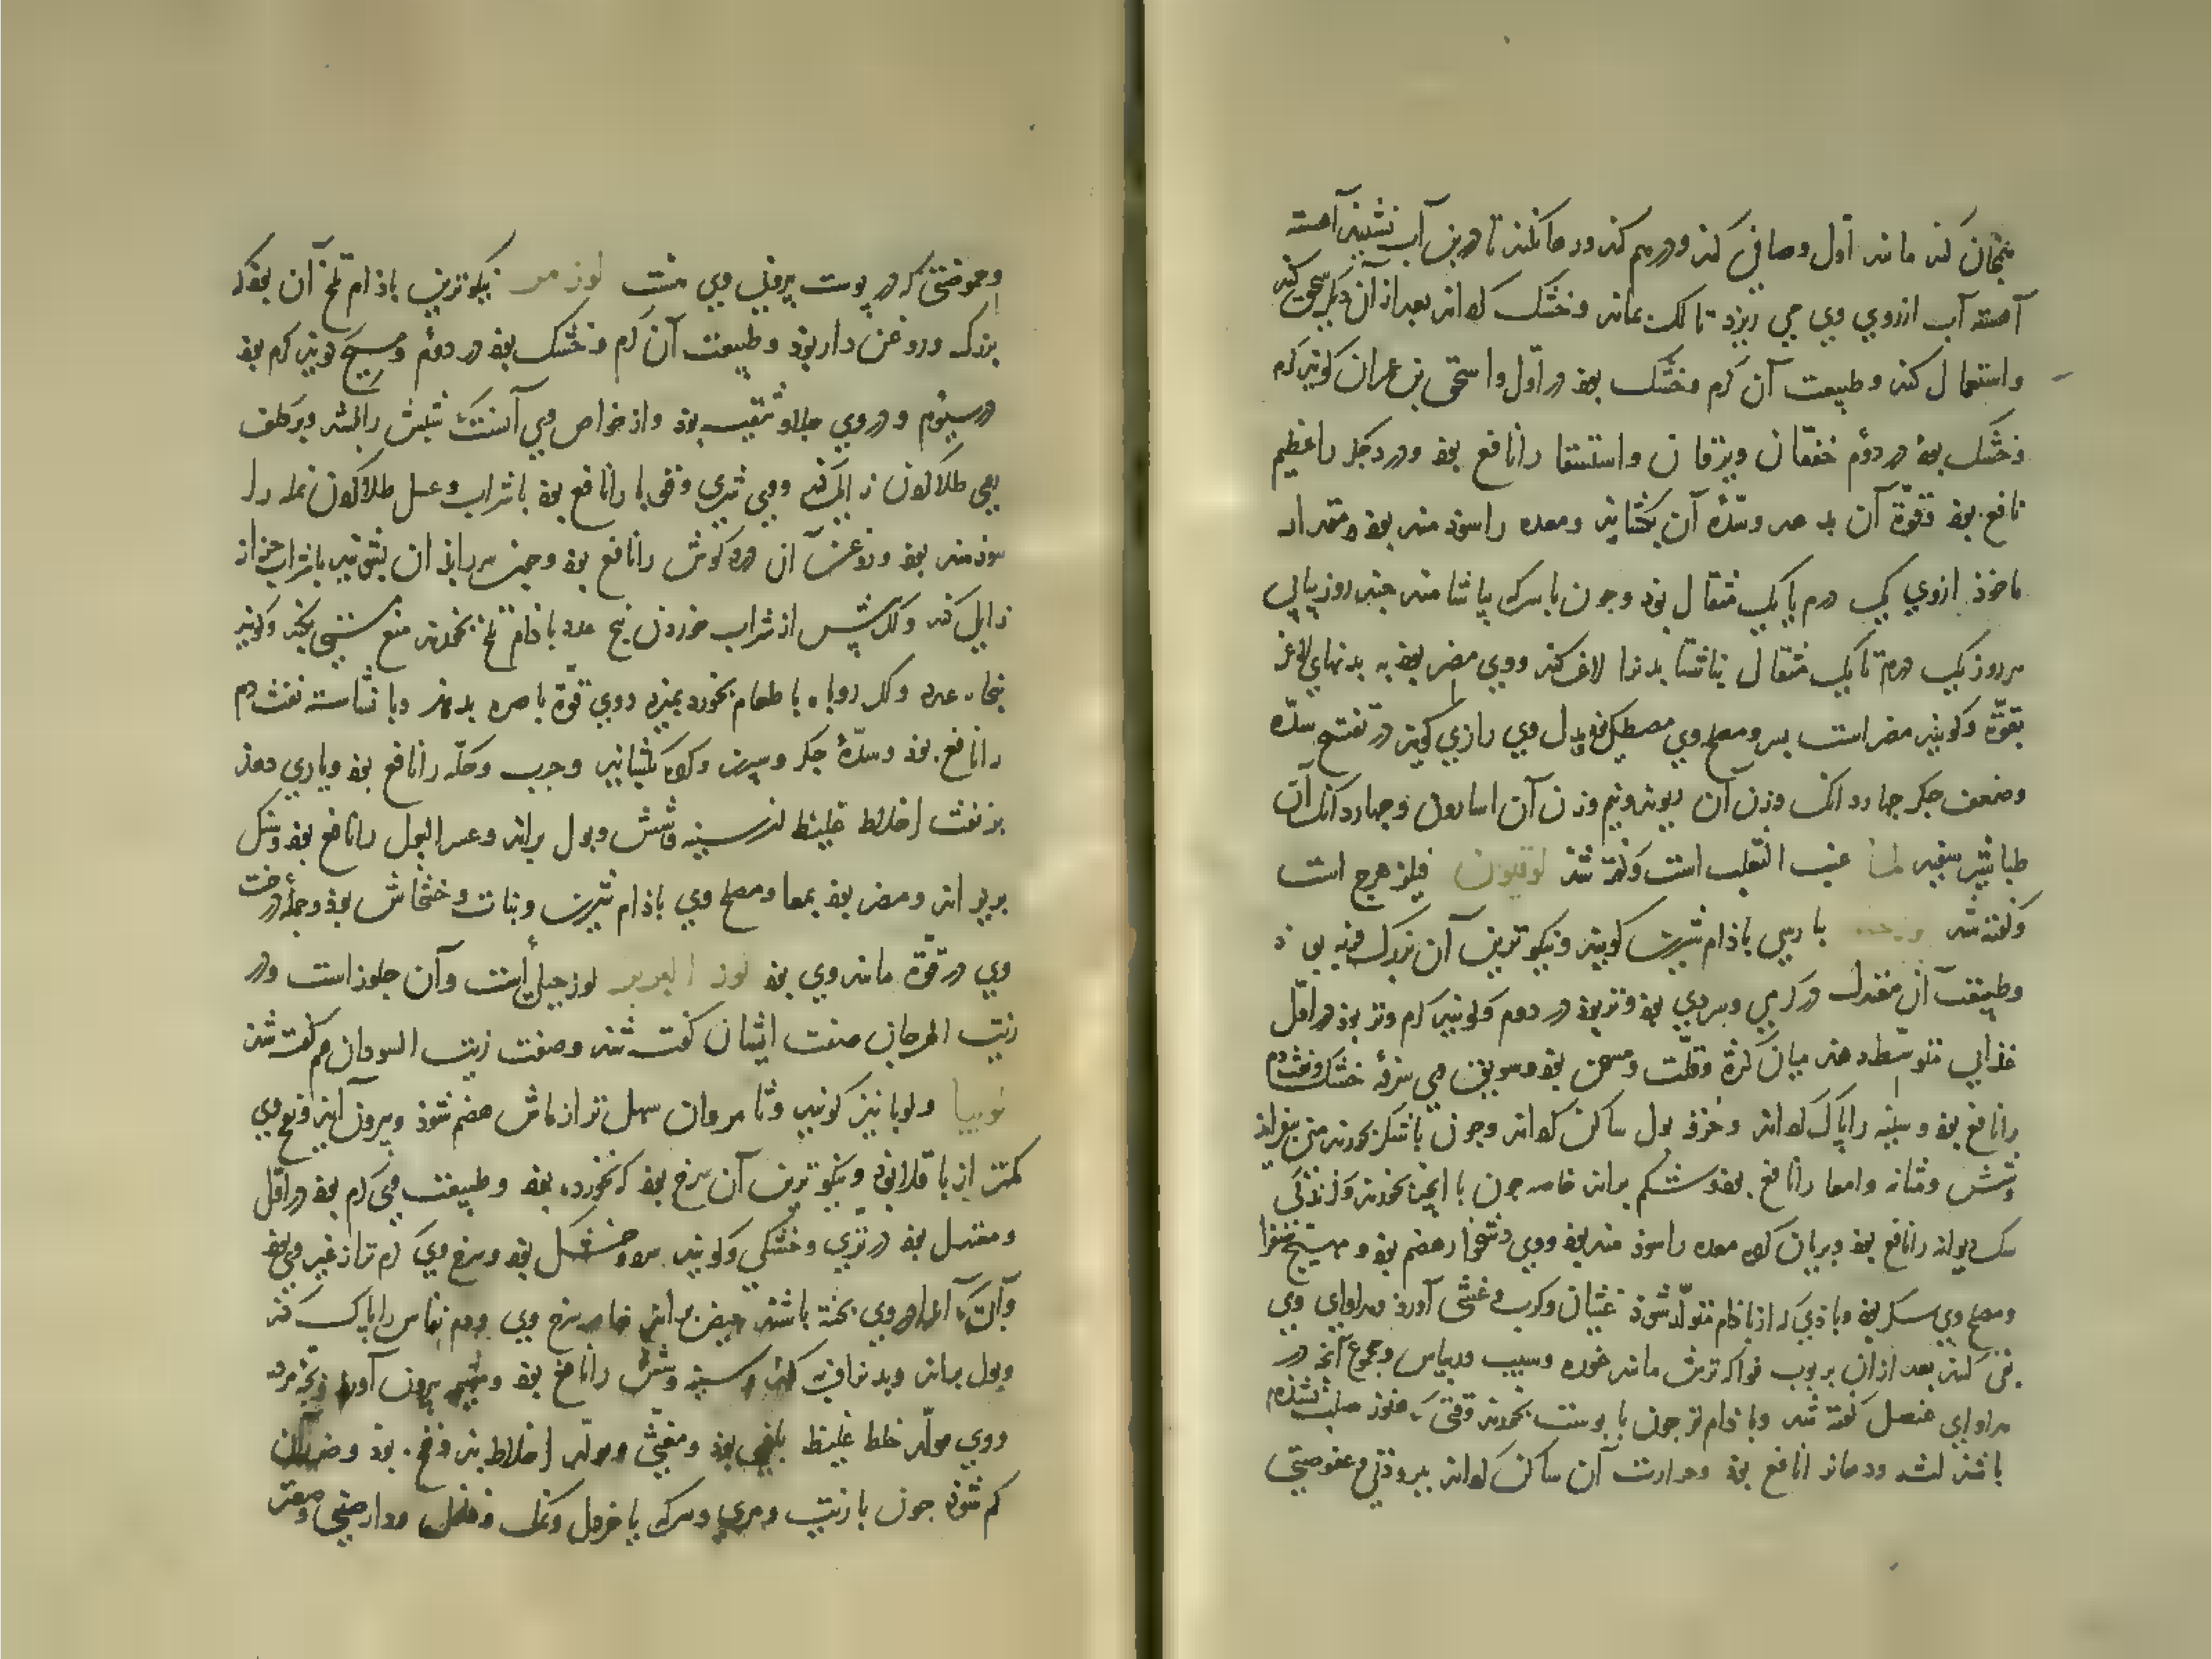 همچنان کند مانند اول و صافی کند و درهم کند و رها کنند تا درین آب نشیند آهسته
آهسته آب از روی وی می ریزد تا لک بماند و خشک گرداند بعد از آن دیگر سحق کند
و استعمال کند و طبیعت آن گرم و خشک بود در اول و اسحق بن عمران گوید گرم
و خشک بود در دوم خفقان و یرقان و استسقا را نافع بود و درد جگر را عظیم
نافع بود و قوة آن بدهد و سدّهٔ آن بگشاید و معده را سودمند بود و مقدار
ماخوذ از وی یک درم یا یک مثقال بود و چون با سرکه بیاشامند چند روز پیاپی
هر روز یک درم تا یک مثقال ناشتا بدن را لاغر کند و وی مضر بود به بدنهای لاغر
بقوّة و گویند مضر است بسر و مصلح وی مصطکی بود بدل وی رازی گوید در تفتیح سدّه
و ضعف جگر چهار دانگ وزن آن ریوند و نیم وزن آن اسارون و چهار دانگ آن
طباشیر سفید لما عنب الثعلب است و گفته شد لوقیون فیلزهرج است
و گفته شد بپارسی باذام شیرین گویند و نیکوترین آن بزرگ فربه بود
و طبیعت آن معتدل در گرمی و سردی بود و تر بود در دوم و گویند گرم و تر بود در اول
غذایی متوسط دهد میان کثرة و قلّت و مسمن بود و سویق وی سرفهٔ خشک و نفث دم
را نافع بود و سینه را پاک گرداند و حرقة بول ساکن گرداند و چون با شکر بخورند منی بیفزاید
و شش و مثانه و امعا را نافع بود و شکم براند خاصه چون با انجیر بخورند و گزندگی
سگ دیوانه را نافع بود و بریان کرده معده را سودمند بود و وی دشخوار هضم بود و مهیج صفرا
و مصلح وی سکر بود و باذی که از باذام متولّد شود غثیان و کرب و غشی آورد و مداوای وی
بقی کنند بعد از آن بربوب فواکه ترش مانند غوره و سیب و ریباس و مجموع آنچه در
مداوای عنصل گفته شد و باذام تر چون با پوست بخورند وقتی که هنوز صلب نشده
باشد لثه و دهان را نافع بود و حرارت آن ساکن گرداند ببرودتی و عفوصتی
و حموضتی که در پوست بیرونی وی هست لوز مر نیکوترین باذام تلخ آن بود که
بزرگ و روغن دار بود و طبیعت آن گرم و خشک بود در دوم و مسیح گوید گرم بود
در سیوم و در وی جلا و تنقیت بود و از خواص وی آنست که ثعلب را بکشد و بر کلف
وی طلا کردن زایل کند و وی شری و قوبا را نافع بود با شراب و عسل طلا کردن نمله را
سودمند بود و روغن آن درد گوش را نافع بود و چون سر بدان بشویند با شراب حزاز
زایل کند و اگر پیش از شراب خوردن پنج عدد باذام تلخ بخورند منع مستی بکند و گویند
پنجاه عدد و اگر روباه با طعام بخورد بمیرد و وی قوّة باصره بدهد و با نشاسته نفث دم
را نافع بود و سدّهٔ جگر و سپرز و گرده بگشاید و جرب و حکّه را نافع بود و یاری دهد
بر نفث اخلاط غلیظ از سینه و شش و بول براند و عسر البول را نافع بود و سنگ
بریزاند و مضر بود بمعا و مصلح وی باذام شیرین و نبات و خشخاش بود و جملهٔ درخت
وی در قوّة مانند وی بود لوز البربر لوز جبلی است و آن جلوز است و در
زیت الهرجان صفت ایشان گفته شد و صفت زیت السودان هم گفته شد
لوبیا و لوبا نیز گویند و ثامر و آن سهل تر از ماش هضم شود و بیرون آید و نفخ وی
کمتر از باقلا بود و نیکوترین آن سرخ بود که نخورده بود و طبیعت وی گرم بود در اول
و معتدل بود در تری و خشکی و گویند سرد و خشک بود و سرخ وی گرم تر از غیر وی بود
و آب که در وی پخته باشند حیض براند خاصه سرخ وی و دم نفاس را پاک کند
و بول براند و بدن را فربه کند و سینه و شش را نافع بود و مشیمه بیرون آورد و بچه مرده
و وی مولّد خلط غلیظ بلغمی بود و مغثی و مولّد اخلاط بد و نفخ بود و ضرر آن
کم شود چون با زیت و مری و سرکه یا خردل و نمک و فلفل و دارصینی و صعتر